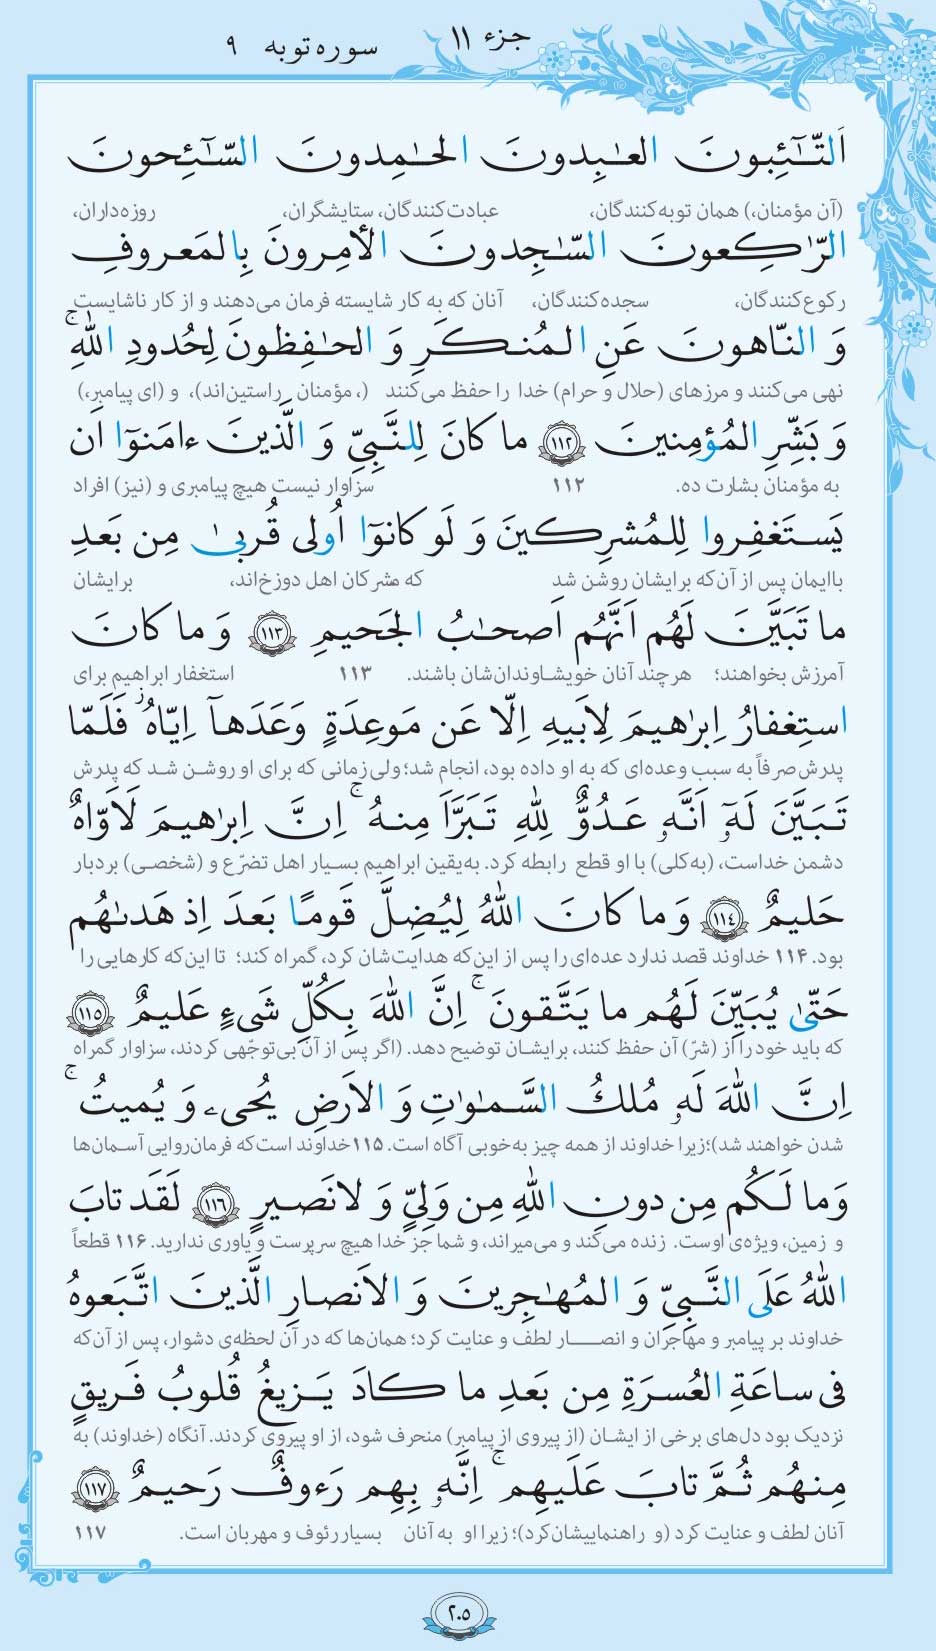 جزء ۱۱
سوره توبه ۹
اَلتّٰٓئِبونَ العٰبِدونَ الحٰمِدونَ السّٰٓئِحونَ
(آن مؤمنان،) همان توبه‌کنندگان، عبادت‌کنندگان، ستایشگران، روزه‌داران،
الرّٰکِعونَ السّٰجِدونَ الأمِرونَ بِالمَعروفِ
رکوع‌کنندگان، سجده‌کنندگان، آنان که به کار شایسته فرمان می‌دهند و از کار ناشایست
وَ النّاهونَ عَنِ المُنکَرِ وَ الحٰفِظونَ لِحُدودِ اللّٰهِۚ
نهی می‌کنند و مرزهای (حلال و حرام) خدا را حفظ می‌کنند (، مؤمنان راستین‌اند)، و (ای پیامبر،)
وَ بَشِّرِ المُؤمِنینَ ﴿۱۱۲﴾ ما کانَ لِلنَّبِیِّ وَ الَّذینَ ءامَنوٓا اَن
به مؤمنان بشارت ده. ۱۱۲ سزاوار نیست هیچ پیامبری و (نیز) افراد
یَستَغفِروا لِلمُشرِکینَ وَ لَو کانوٓا اُولی قُربیٰ مِن بَعدِ
باایمان پس از آن‌که برایشان روشن شد که مشرکان اهل دوزخ‌اند، برایشان
ما تَبَیَّنَ لَهُم اَنَّهُم اَصحٰبُ الجَحیمِ ﴿۱۱۳﴾ وَ ما کانَ
آمرزش بخواهند؛ هرچند آنان خویشاوندان‌شان باشند. ۱۱۳ استغفار ابراهیم برای
استِغفارُ اِبرٰهیمَ لِاَبیهِ اِلّا عَن مَوعِدَةٍ وَعَدَهآ اِیّاهُۚ فَلَمّا
پدرش صرفاً به سبب وعده‌ای که به او داده بود، انجام شد؛ ولی زمانی که برای او روشن شد که پدرش
تَبَیَّنَ لَهٗٓ اَنَّهٗ عَدُوٌّ لِلّٰهِ تَبَرَّاَ مِنهُۚ اِنَّ اِبرٰهیمَ لَاَوّاهٌ
دشمن خداست، (به‌کلی) با او قطع رابطه کرد. به‌یقین ابراهیم بسیار اهل تضرّع و (شخصی) بردبار
حَلیمٌ ﴿۱۱۴﴾ وَ ما کانَ اللّٰهُ لِیُضِلَّ قَومًا بَعدَ اِذ هَدىٰهُم
بود. ۱۱۴ خداوند قصد ندارد عده‌ای را پس از این‌که هدایت‌شان کرد، گمراه کند؛ تا این‌که کارهایی را
حَتّیٰ یُبَیِّنَ لَهُم ما یَتَّقونَۚ اِنَّ اللّٰهَ بِکُلِّ شَیءٍ عَلیمٌ ﴿۱۱۵﴾
که باید خود را از (شرّ) آن حفظ کنند، برایشان توضیح دهد. (اگر پس از آن بی‌توجّهی کردند، سزاوار گمراه
اِنَّ اللّٰهَ لَهٗ مُلکُ السَّمٰوٰتِ وَ الاَرضِ یُحیۦ وَ یُمیتُۚ
شدن خواهند شد)؛ زیرا خداوند از همه چیز به‌خوبی آگاه است. ۱۱۵ خداوند است که فرمان‌روایی آسمان‌ها
وَما لَکُم مِن دونِ اللّٰهِ مِن وَلِیٍّ وَ لا نَصیرٍ ﴿۱۱۶﴾ لَقَد تابَ
و زمین، ویژه‌ی اوست. زنده می‌کند و می‌میراند، و شما جز خدا هیچ سرپرست و یاوری ندارید. ۱۱۶ قطعاً
اللّٰهُ عَلَی النَّبِیِّ وَ المُهٰجِرینَ وَ الاَنصارِ الَّذینَ اتَّبَعوهُ
خداوند بر پیامبر و مهاجران و انصار لطف و عنایت کرد؛ همان‌ها که در آن لحظه‌ی دشوار، پس از آن‌که
فی ساعَةِ العُسرَةِ مِن بَعدِ ما کادَ یَزیغُ قُلوبُ فَریقٍ
نزدیک بود دل‌های برخی از ایشان (از پیروی از پیامبر) منحرف شود، از او پیروی کردند. آنگاه (خداوند) به
مِنهُم ثُمَّ تابَ عَلَیهِمۚ اِنَّهٗ بِهِم رَءوفٌ رَحیمٌ ﴿۱۱۷﴾
آنان لطف و عنایت کرد (و راهنماییشان کرد)؛ زیرا او به آنان بسیار رئوف و مهربان است. ۱۱۷
۲۰۵